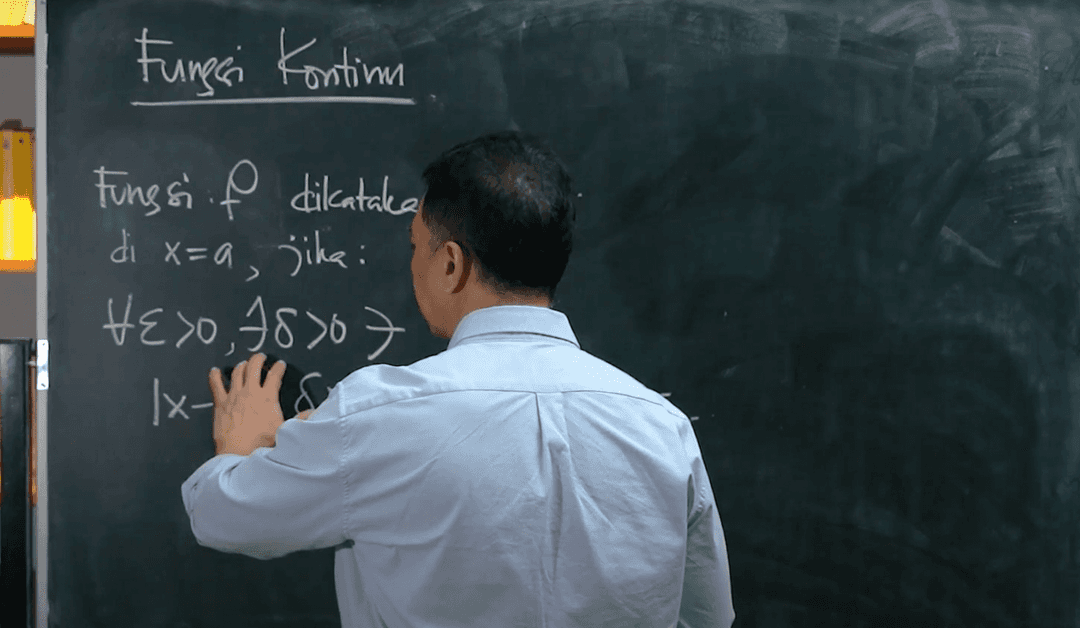 Fungsi Kontinu
Fungsi f
di x=a, jika:
∀ε>0, ∃δ>0 ∋
|x- δ